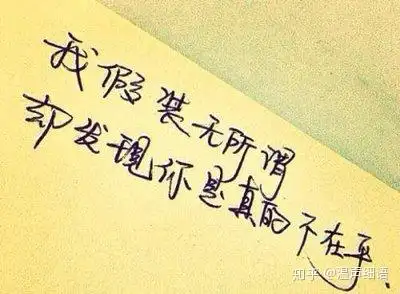 我假装无所谓
却发现你是真的不在乎.
知乎 @温声细语